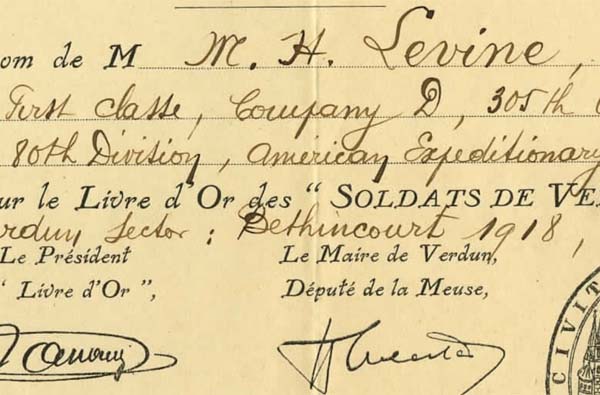 om de M M. H. Levine,
First classe, Company D, 305th
80th Division, American Expeditionary
ur le Livre d'Or des “ SOLDATS DE VE
rduy Sector : Bethincourt 1918,
Le Président Le Maire de Verdun,
“ Livre d'Or ”, Député de la Meuse,
CIVIT